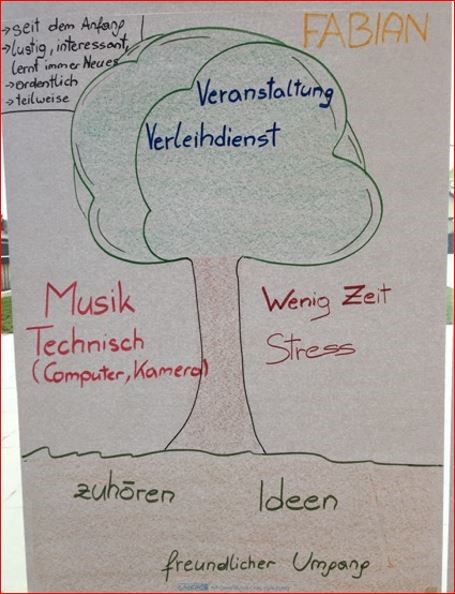 FABIAN
→ seit dem Anfang
→ lustig, interessant,
lernt immer Neues
→ ordentlich
→ teilweise
Veranstaltung
Verleihdienst
Musik
Technisch
(Computer, Kamera)
Wenig Zeit
Stress
zuhören
Ideen
freundlicher Umpang